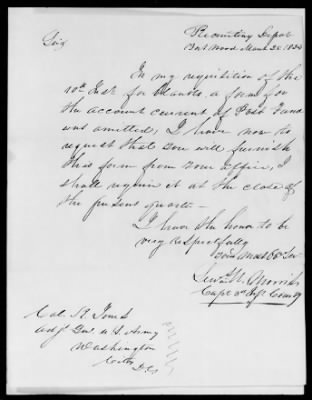 Recruiting Depot
Fort Wood March 20 1854
Sir
In my requisition of the
10th for blanks, a form for
the account current of Post Fund
was omitted; I have now to
request that you will furnish
this form from your office, I
shall require it at the close of
the present quarter
I have the honor to be
very respectfully
Your Most Obt Ser
Morris
Capt 3d Inf Comdg
Col. R. Jones
Adjt Genl U S Army
Washington
City
D.C.